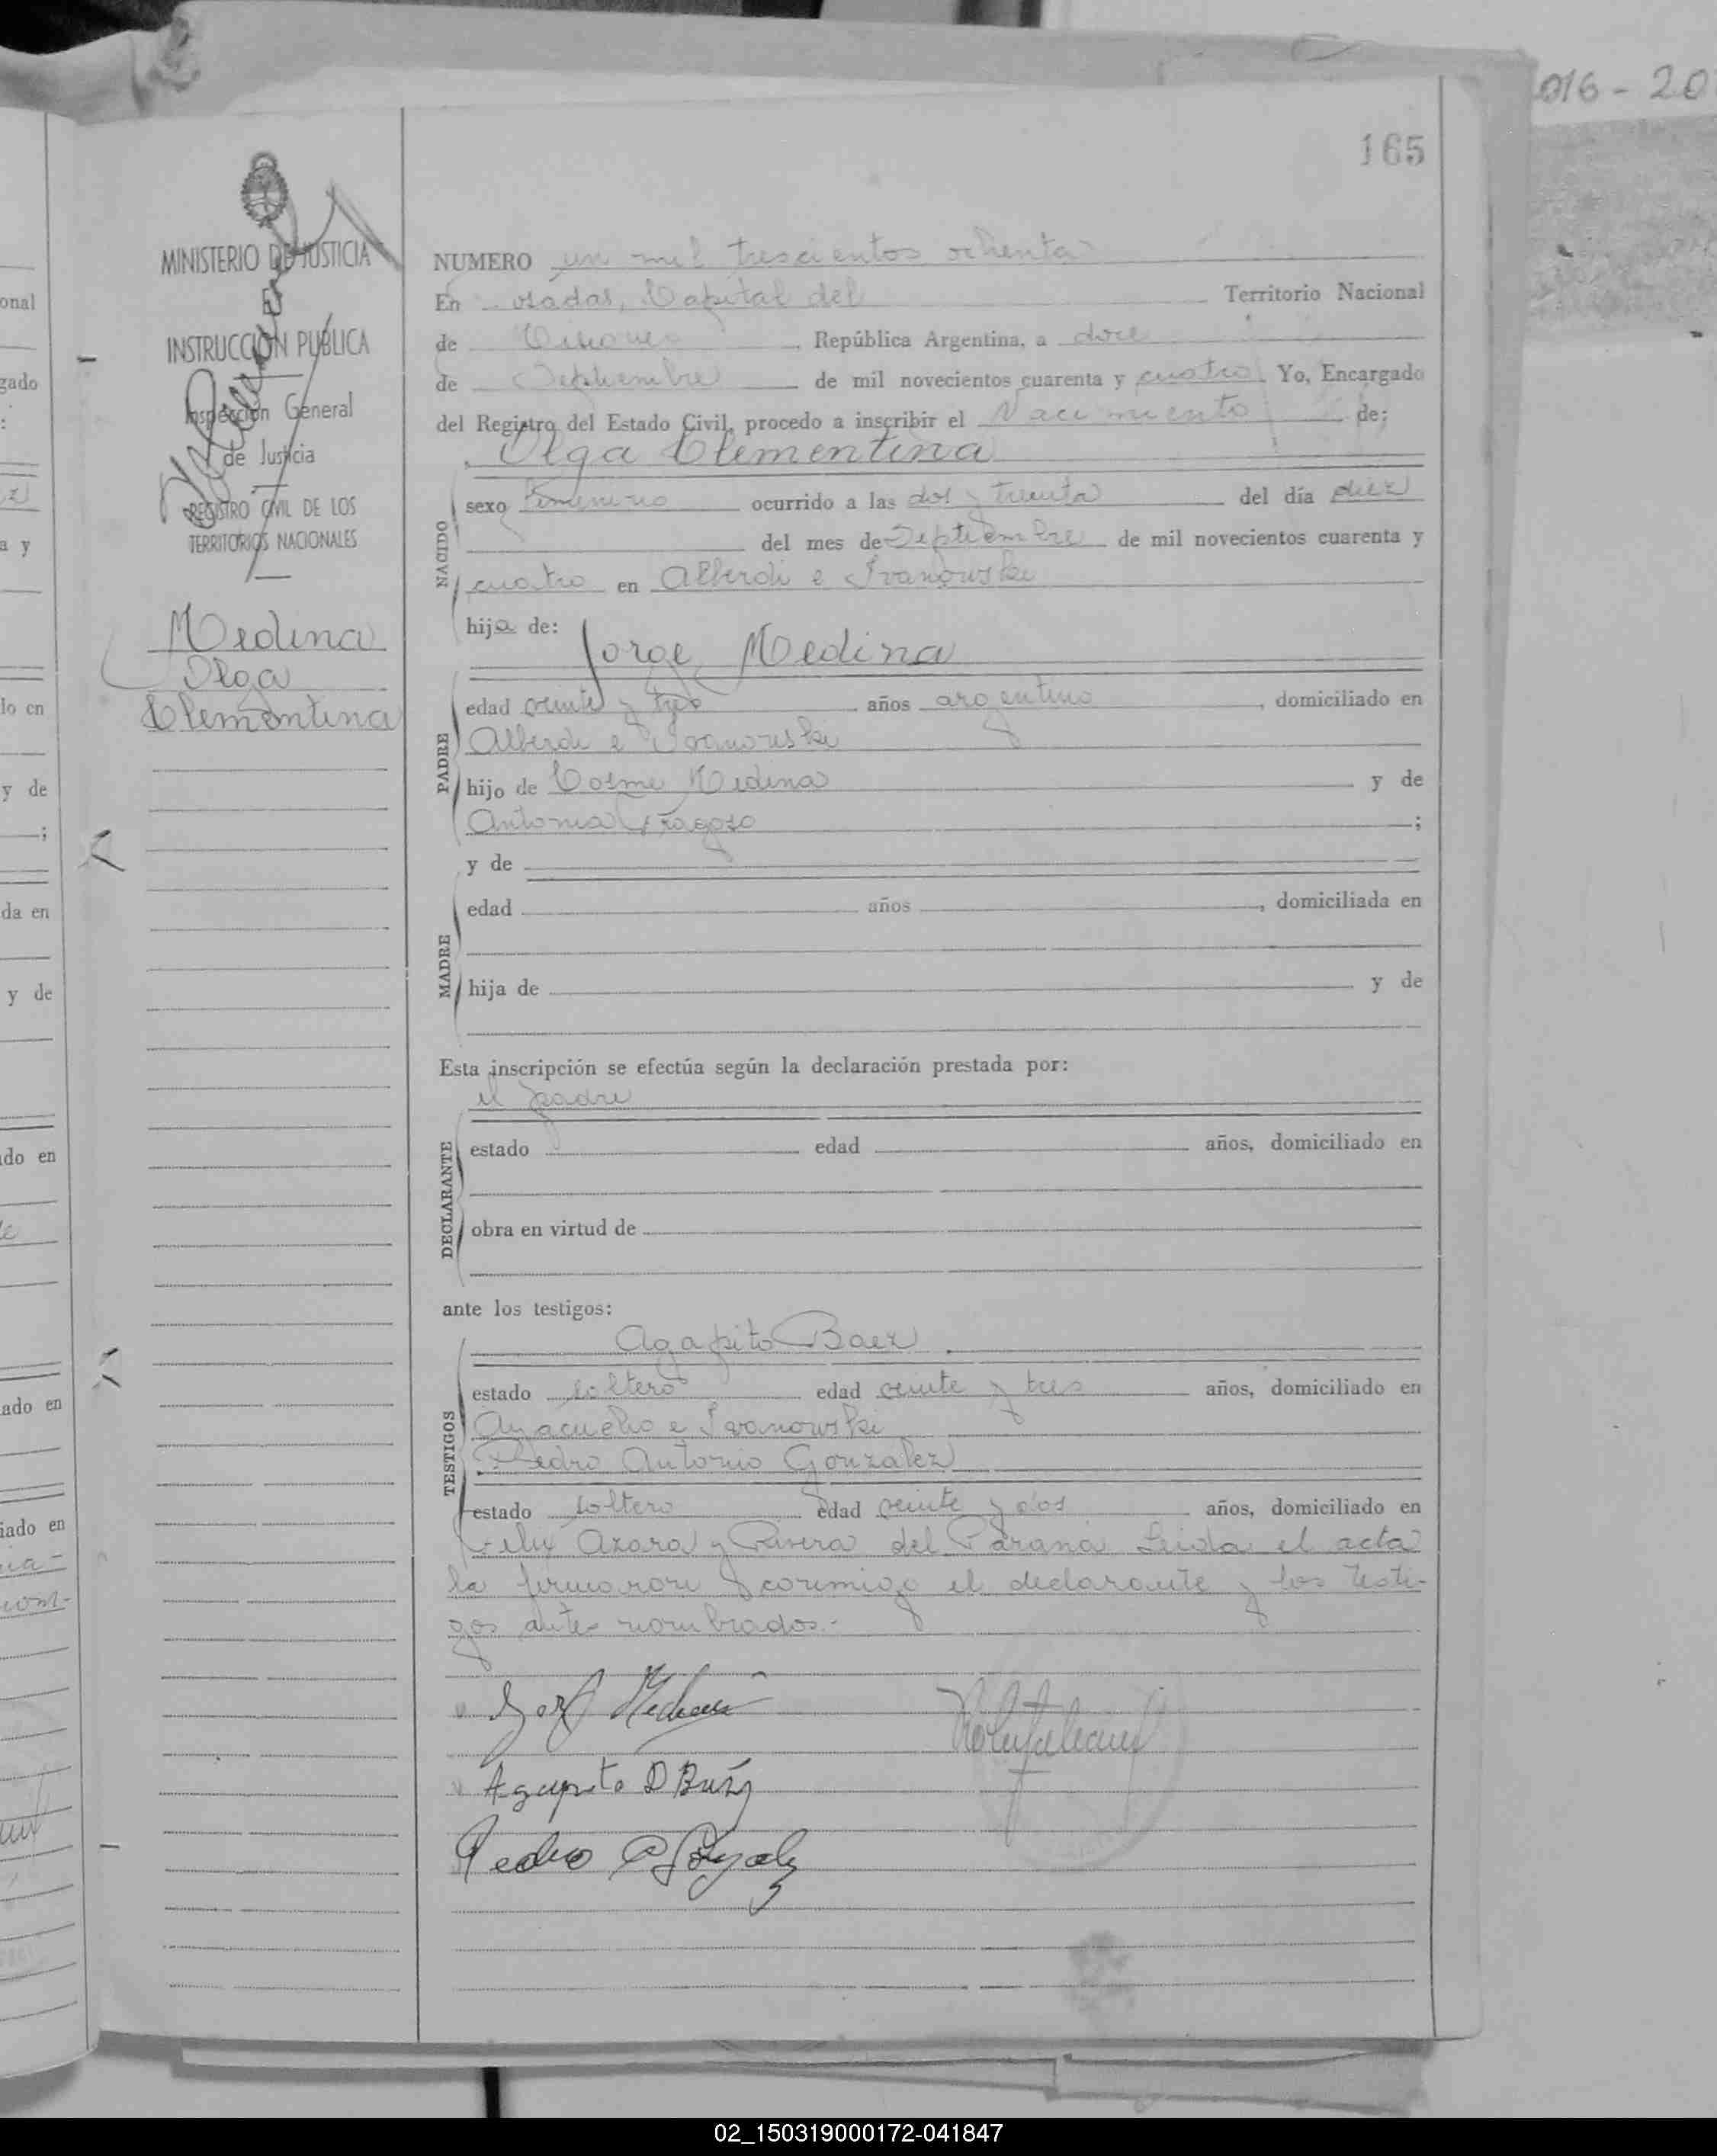 016-20
165
MINISTERIO DE JUSTICIA
E
INSTRUCCION PUBLICA
Inspección General
de Justicia
REGISTRO CIVIL DE LOS
TERRITORIOS NACIONALES
Medina
Olga
Clementina
NUMERO un mil trescientos ochenta
En osadas, Capital del Territorio Nacional
de Misiones, República Argentina, a doce
de Septiembre de mil novecientos cuarenta y cuatro Yo, Encargado
del Registro del Estado Civil, procedo a inscribir el Nacimiento de:
Olga Clementina
NACIDO
sexo femenino ocurrido a las dos y treinta del día diez
del mes de Septiembre de mil novecientos cuarenta y
cuatro en Alberdi e Ivanowski
hija de:
Jorge Medina
PADRE
edad veinte y tres años argentino, domiciliado en
Alberdi e Ivanowski
hijo de Cosme Medina y de
Antonia Fragoso ;
y de
MADRE
edad años , domiciliada en
hija de y de
Esta inscripción se efectúa según la declaración prestada por:
el padre
DECLARANTE
estado edad años, domiciliado en
obra en virtud de
ante los testigos:
Agapito Baez
TESTIGOS
estado soltero edad veinte y tres años, domiciliado en
Ayacucho e Ivanowski
Pedro Antonio Gonzalez
estado soltero edad veinte y dos años, domiciliado en
Felix Azara y Rivera del Paraná Leida el acta
la firmaron conmigo el declarante y los testi-
gos antes nombrados.-
Jorge Medina
Agapito D Baéz
Pedro A Gonzalez
onal
gado
a y
lo en
y de
;
da en
y de
ido en
ado en
iado en
02_150319000172-041847